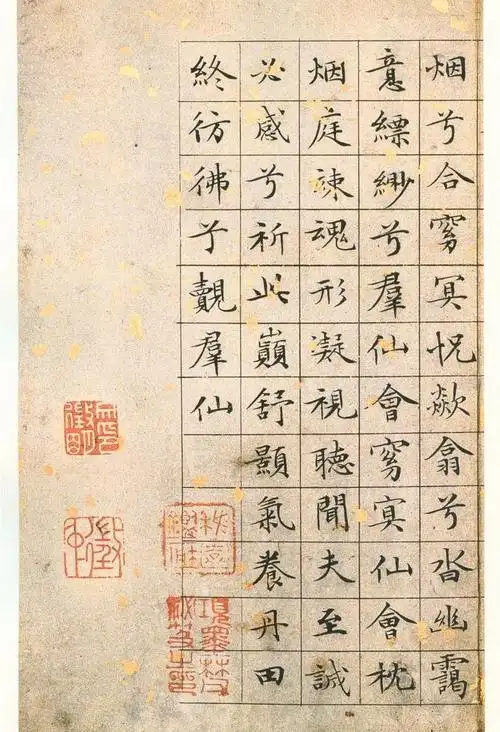 烟兮合窈冥怳歘翕兮沓幽靄
意縹緲兮羣仙會窈冥仙會枕
烟庭竦魂形凝視聽聞夫至誠
必感兮祈此巔舒顥氣養丹田
終彷彿兮覿羣仙